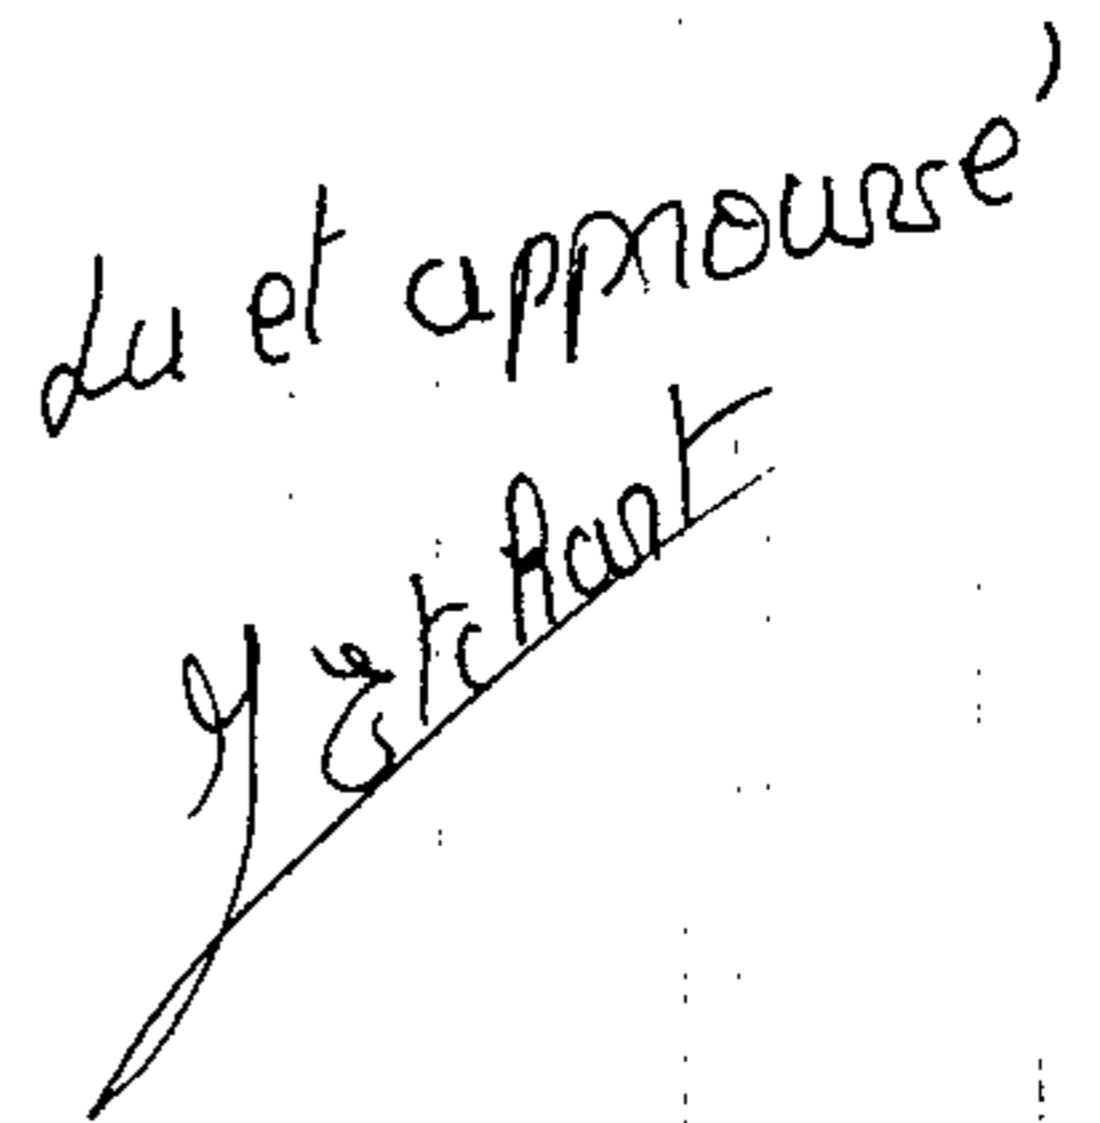 Lu et approuvé
J Etchart